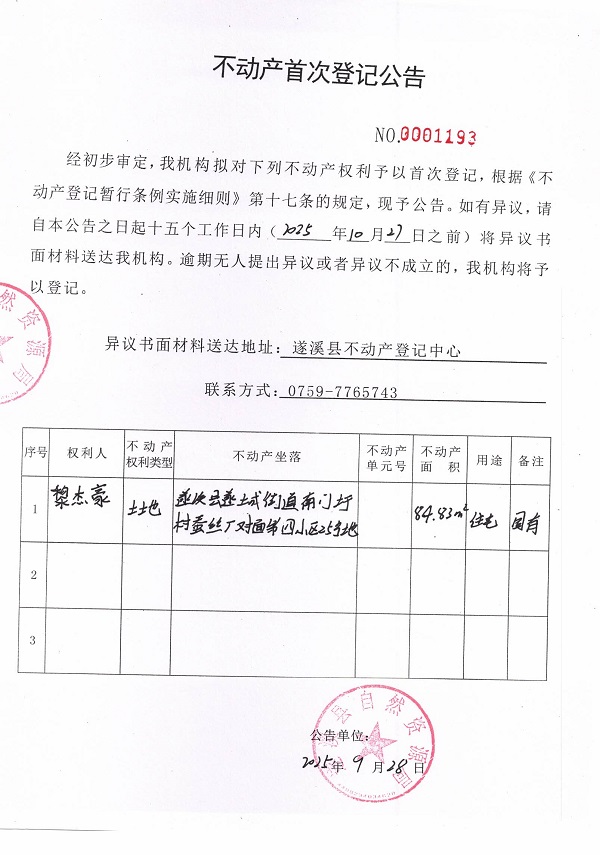 不动产首次登记公告
NO.0001193
经初步审定，我机构拟对下列不动产权利予以首次登记，根据《不
动产登记暂行条例实施细则》第十七条的规定，现予公告。如有异议，请
自本公告之日起十五个工作日内（2025年10月27日之前）将异议书
面材料送达我机构。逾期无人提出异议或者异议不成立的，我机构将予
以登记。
异议书面材料送达地址：遂溪县不动产登记中心
联系方式：0759-7765743
序号 权利人 不动产权利类型 不动产坐落 不动产单元号 不动产面积 用途 备注
1 黎杰豪 土地 遂溪县遂城街道南门圩 84.83m² 住宅 国有
村蚕丝厂对面第四小区25号地
2
3
县自然资源局
公告单位：
2025年9月28日
然资源局